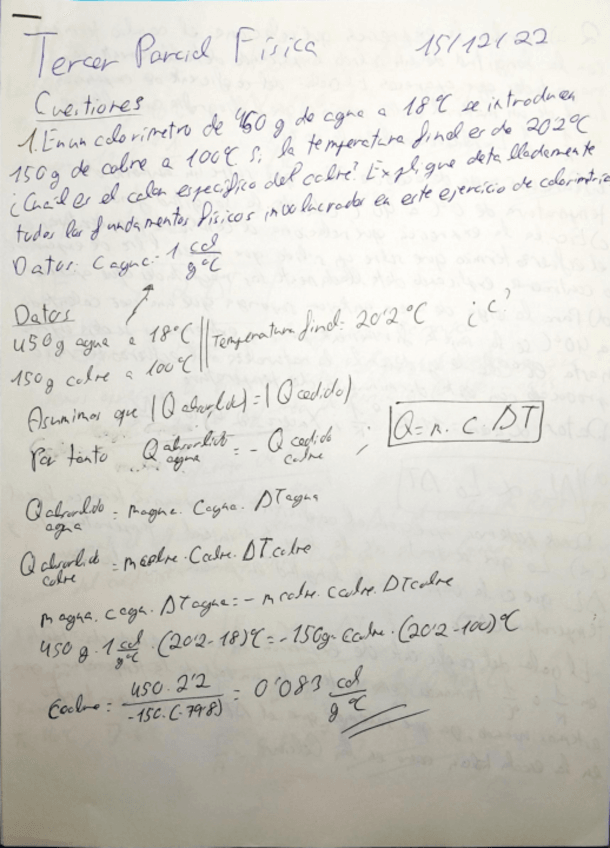 Tercer Parcial Física 15/12/22
Cuestiones
1. En un calorímetro de 450 g de agua a 18ºC se introducen
150 g de cobre a 100ºC Si la temperatura final es de 20'2ºC
¿Cuál es el calor específico del cobre? Explique detalladamente
todos los fundamentos físicos involucrados en este ejercicio de calorimetría
Datos: C agua: 1 cal/gºC
Datos
450 g agua a 18ºC || Temperatura final: 20'2ºC ¿C?
150 g cobre a 100ºC
Asumimos que |Q absorbido| = |Q cedido|
Por tanto Q absorbido agua = - Q cedido cobre ; Q = m · C · ΔT
Q absorbido agua = m agua · C agua · ΔT agua
Q absorbido cobre = m cobre · C cobre · ΔT cobre
m agua · C agua · ΔT agua = - m cobre · C cobre · ΔT cobre
450 g · 1 cal/gºC · (20'2 - 18)ºC = -150g · C cobre · (20'2 - 100)ºC
C cobre = 450 · 2'2 / -150 · (-79'8) = 0'083 cal/gºC